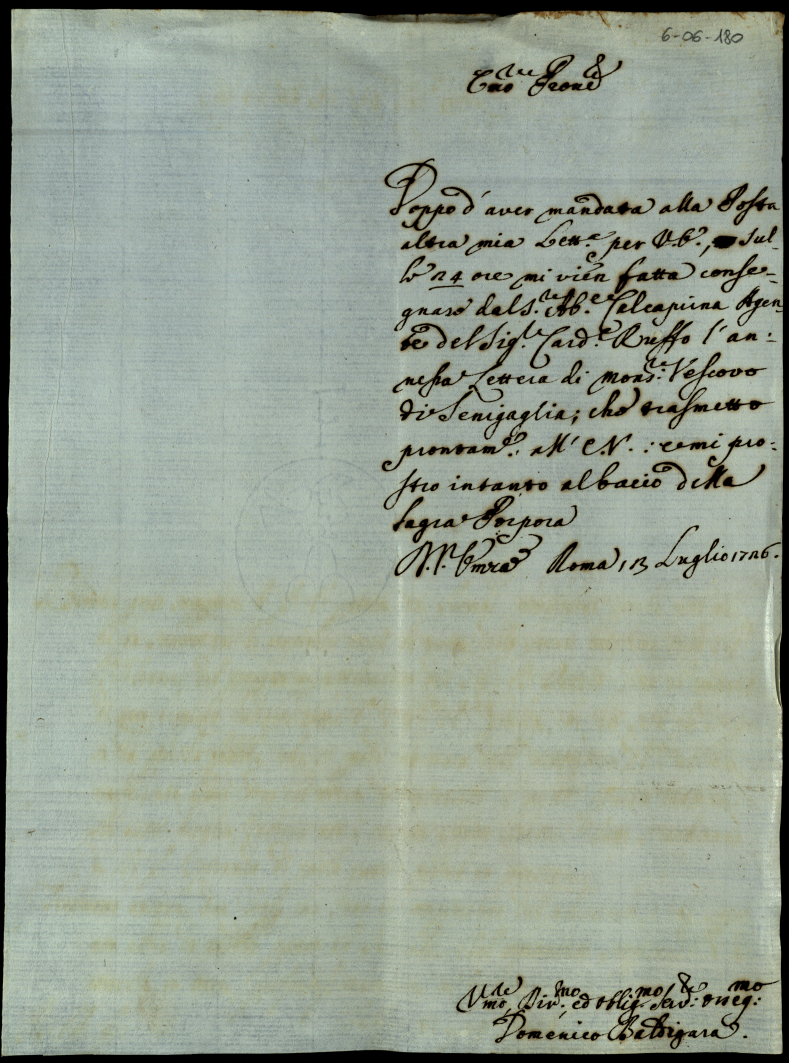 6-06-180
Em̃o Prone
Doppo d'aver mandata alla Posta
altra mia Lett.ª per V.E., sul-
le 24 ore mi vien fatta conse-
gnare dal S.re Ab.e Calcaprina Agen-
te del Sig.r Card.e Ruffo l'an:
nessa Lettera di mons.re Vescovo
di Senigaglia; che trasmetto
prontam.e: all' E.V.: e mi pro:
stro intanto al bacio della
Sagra Porpora
Roma, 13 Luglio 1726.
Um̃o, Div.mo, ed oblig.mo Serv.re osseq.mo:
Domenico Baldigara.